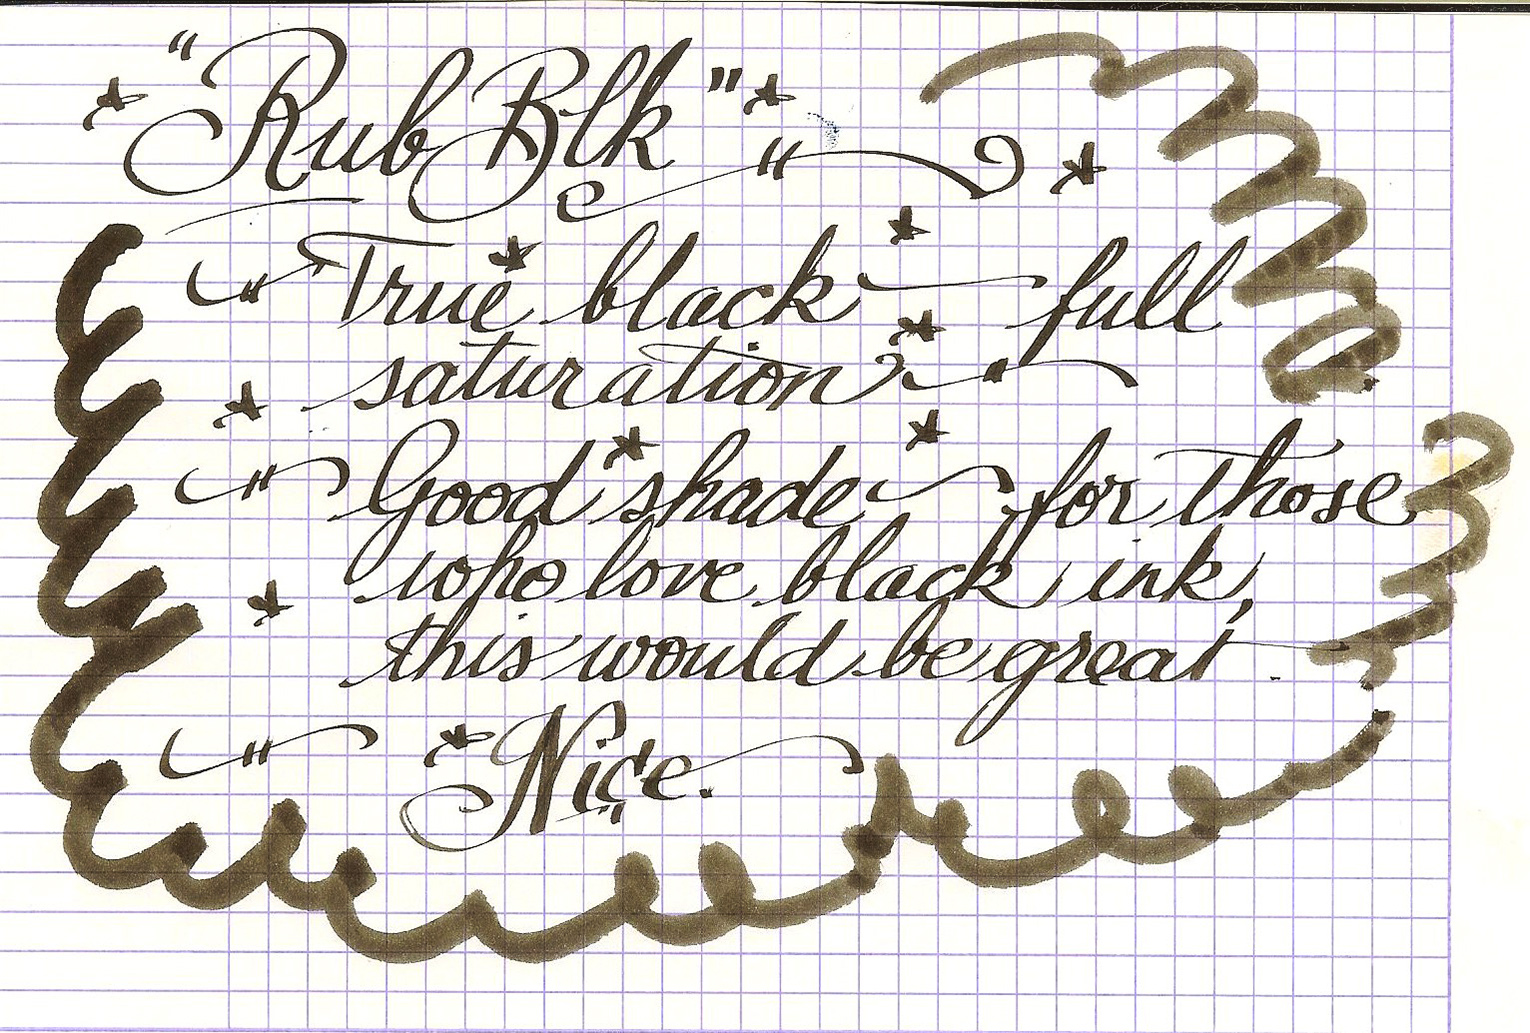 "Rub Blk"
True black full
saturation
Good shade for those
who love black ink,
this would be great.
Nice.